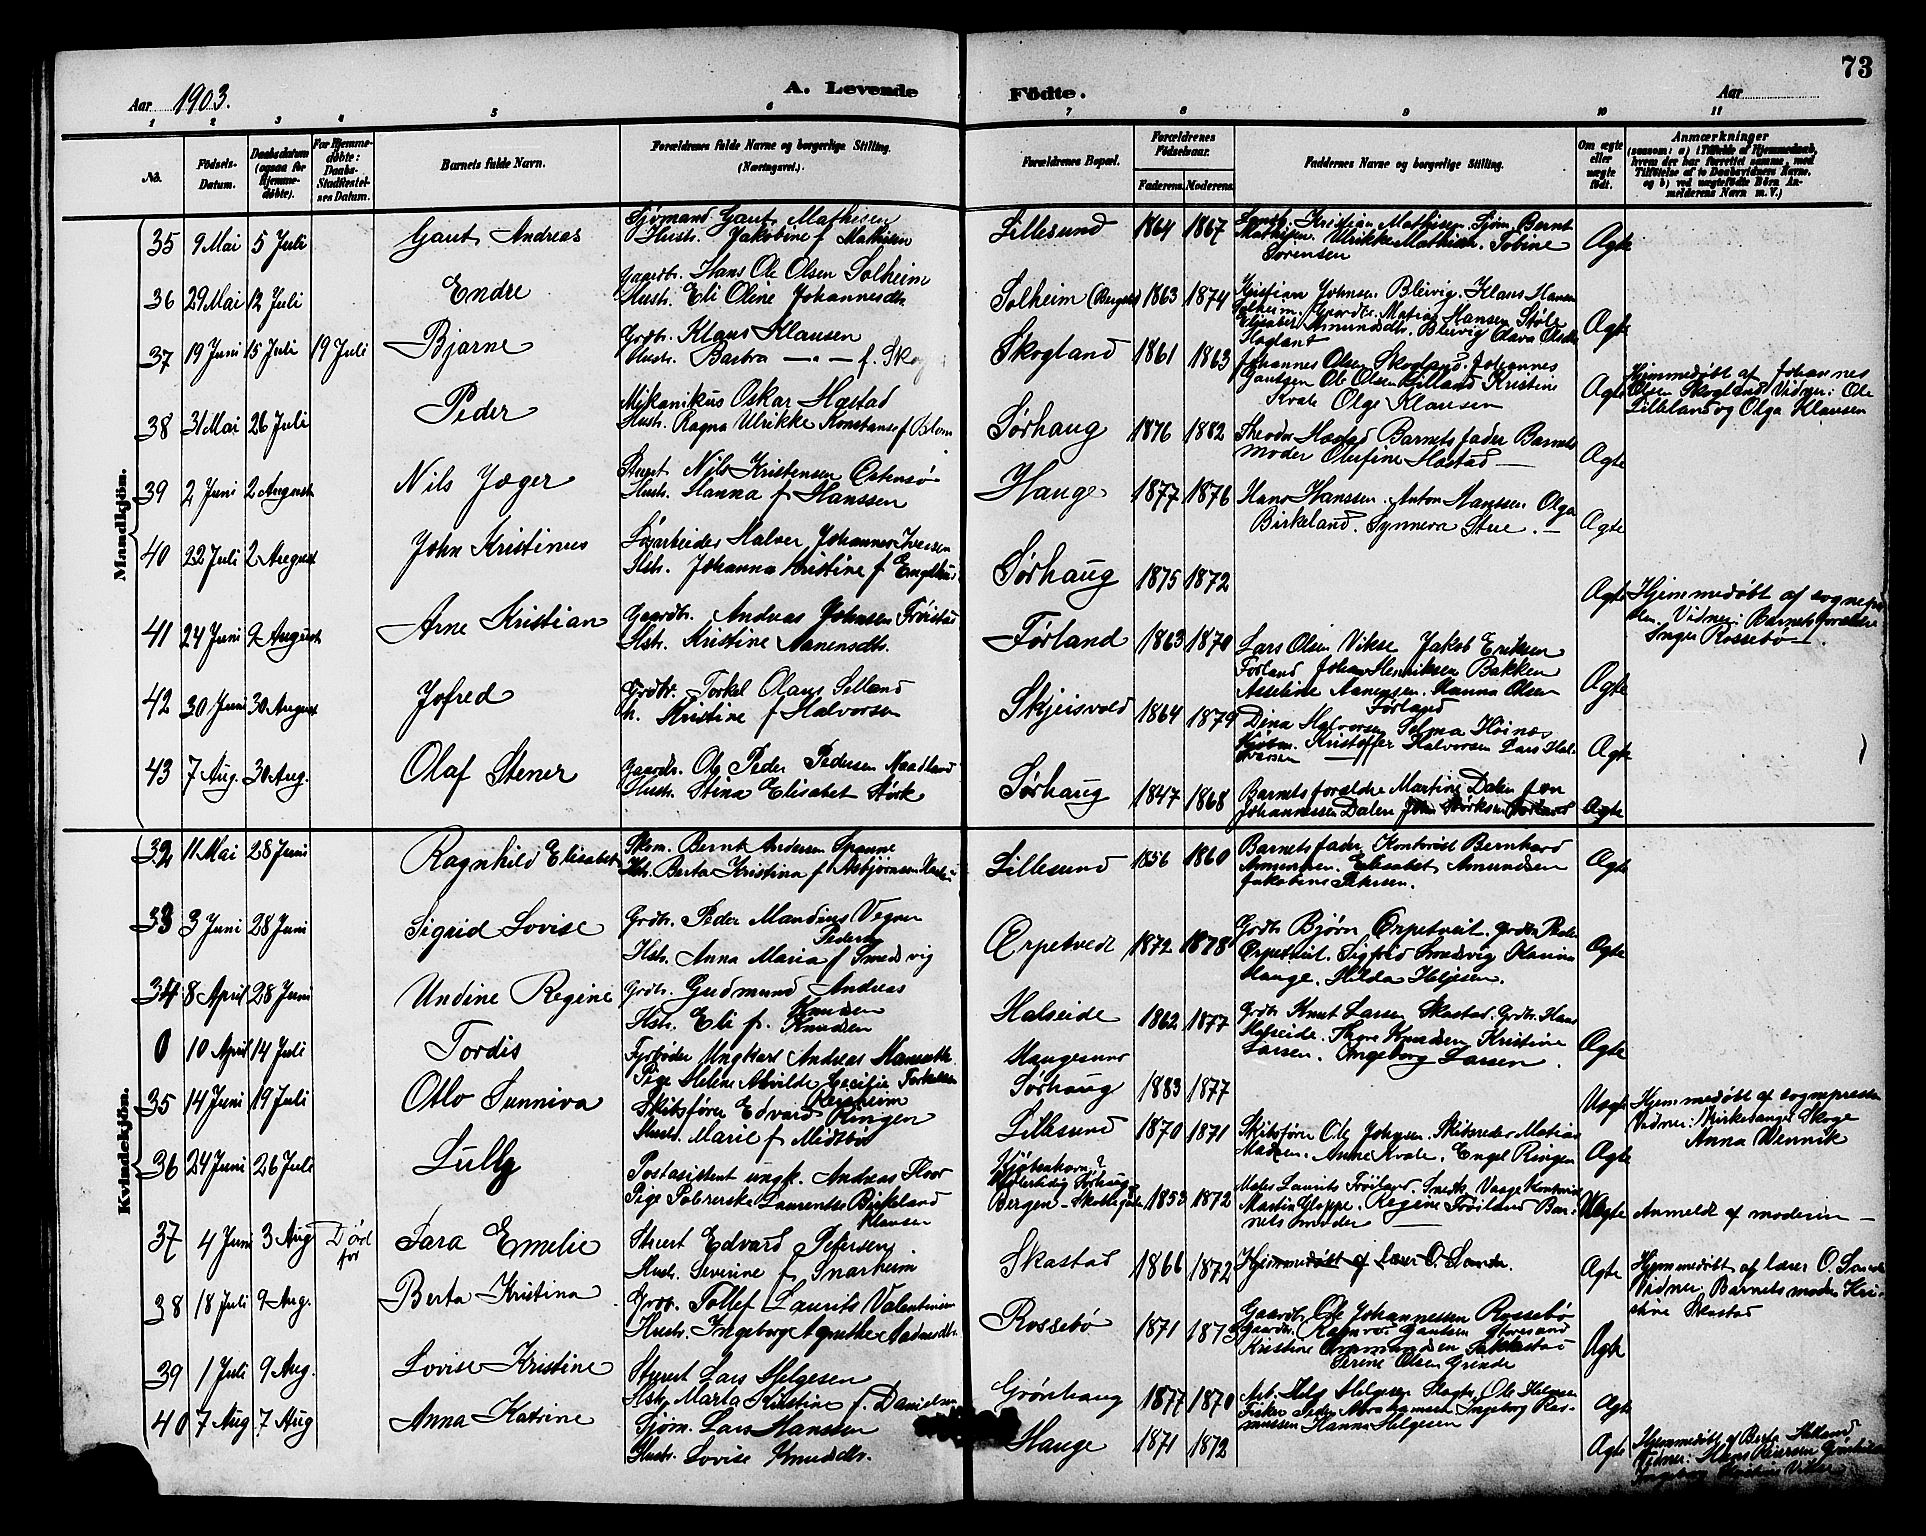 73
Aar 1903.
A. Levende
Fødte.
Aar
1 2 3 4 5 6 7 8 9 10 11
No.
Fødsels-Datum.
Daabsdatum (ogsaa for Hjemmedøbte).
For Hjemmedøbte: Daabs-Stadfæstelses Datum.
Barnets fulde Navn.
Forældrenes fulde Navne og borgerlige Stilling. (Næringsvei.)
Forældrenes Bopæl.
Forældrenes Fødselsaar.
Faderens. Moderens.
Faddernes Navne og borgerlige Stilling.
Om ægte eller uægte født.
Anmærkninger
Mandkjøn.
35 9 Mai 5 Juli Gaut Andreas
Sjømand Gaut Mathisen
Hustr. Jakobine f Mathisen
Lillesund 1864 1867
Kristian Mathisen. Sjøm. Bernt
Mathisen. Ulrikke Mathisen. Tobine
Sørensen
Ægte
36 29 Mai 12 Juli Endre
Gaardbr. Hans Ole Olsen Solheim
Hustr. Eli Oline Johannesdtr.
Solheim 1863 1874
Kristian Johnsen Bleivig. Klaus Hansen
Solheim. Matias Hansen Støle
Elisabet Amundsdtr. Bleivig Olava Olsdtr
Ægte
37 19 Juni 15 Juli 19 Juli Bjarne
Grdbr. Klaus Klausen
Hustr. Barbra — " — f. Skog
Skogland 1861 1863
Johannes Olsen Skogland. Johannes
Gautsen Ole Olsen Lilland Kristine
Kvale Olga Klausen
Ægte
Hjemmedøbt af Johannes
Olsen Skogland Vidner: Ole
Lilleland og Olga Klausen
38 31 Mai 26 Juli Peder
Mekanikus Oskar Hæstad
Hustr. Ragna Ulrikke Konstanse f Blom
Sørhaug 1876 1882
Theodor Hæstad Barnets fader Barnets
moder Olufine Hæstad —
Ægte
39 2 Juni 2 August Nils Jæger
Stuert Nils Kristensen Østensø
Hustr. Hanna f Hanssen
Hauge 1877 1876
Hans Hanssen. Anton Hanssen Olga
Birkeland. Synneva Stue. —
Ægte
40 22 Juli 2 August John Kristinus
Halvor Johannes Iversen
Hstr. Johanna Kristine f
Sørhaug 1875 1872
Ægte
Hjemmedøbt af sognepr
Vidner: Barnets forældre
Inger Rossebø —
41 24 Juni 9 August Arne Kristian
Gaardbr. Andreas Johnsen
Hstr. Kristine Aanensdtr.
Førland 1863 1870
Lars Olsen Vikse Jakob Eriksen
Førland Johan Henriksen Bakken
Asseline Aanensen. Hanna Olsen
Førland
Ægte
42 30 Juni 30 August Jofred
Grdbr. Torkel Olaus Selland
h. Kristine f Halvorsen
Skjeisvold 1864 1879
Dina Halvorsen Selma Høines
Kristoffer Halvorsen Lars Halvorsen
Ægte
43 7 Aug. 30 Aug. Olaf Stener
Gaardbr. Ole Peder Pedersen
Hustr. Stina Elisabet Størk
Sørhaug 1847 1868
Barnets forældre Martine Dalen
Johannessen Dalen
Ægte
Kvindekjøn.
32 11 Mai 28 Juni Ragnhild Elisabet
Skom. Bernt Andersen Spanne
Hstr. Berta Kristina f Asbjørnsen
Lillesund 1856 1860
Barnets fader, Kontorist Bernhard
Amundsen. Elisabet Amundsen
Jakobine Petersen.
Ægte
33 3 Juni 28 Juni Sigrid Lovise
Grdbr. Peder Mandius Vegner
Pedersen
Hstr. Anna Maria f Smedsvig
Ørpetvedt 1872 1878
Grdbr Bjørn Ørpetveit. Grdbr Peder
Ørpetveit. Sigfrid Karina
Hauge. Hilda Heljesen.
Ægte
34 8 April 28 Juni Undine Regine
Grdbr. Gudmund Andreas
Knudsen
Hstr. Eli f. Knudsen
Halseide 1862 1877
Grdbr Knut Larsen Skastad. Grdbr. Hans
Halseide. Thore Knudsen Kristine
Larsen. Ingeborg Larsen.
Ægte
0 10 April 14 Juli Tordis
Fyrbøder Ungkarl Andreas
Pige Helene Alvilde Cecilie Torkelsen
Haugesund
Sørhaug 1883 1877
Uægte
Hjemmedøbt af sognepresten
Vidner: Kirkesanger Skoge
Anna Wennik
35 14 Juni 19 Juli Otto Sunniva
Skibsfører Edvard Ringen
Hustr. Marie f Midtbø
Lillesund 1870 1871
Skibsfører Ole Johnsen. Skibsreder Matias
Madsen. Anne Kvale. Engel Ringen
Ægte
36 24 Juni 26 Juli Lully
Postasistent ungk. Andreas
Pige Laurentse Birkeland
Klausen
Kjøbenhavn
Midlertidig Sørhaug
Bergen 1853 1872
Maler Laurits Frøiland. Kontorist
Martin Gloppe. Regine Frøiland Barnets moder —
Uægte
Anmeldt af moderen —
37 4 Juni 3 Aug Død før Sara Emelie
Stuert Edvard Petersen
Hust. Severine f Snarheim
Skastad 1866 1872
Hjemmedøbt af Lærer O. Sande.
Ægte
Hjemmedøbt af lærer O. Sande
Vidner: Barnets moder Kristine Skastad
38 18 Juli 9 Aug. Berta Kristina
Grdbr. Tollef Laurits Valentinsen
Hustr. Ingeborg Agnethe Aadnesdtr.
Rossebø 1871 1873
Gaardbr. Ole Johannessen Rossebø
Gaardbr. Rasmus Gautsen
Kristine Ommundsen
Serine Olsen Grinde
Ægte
39 1 Juli 9 Aug. Lovise Kristine
Stuert Lars Helgesen
Hstr. Marta Kristine f. Danielsen
Grønhaug 1877 1870
Arb. Helge Helgesen Ole Helgesen
Fisker Peder Abrahamsen Ingeborg Rasmussen Hanna Helgesen
Ægte
40 7 Aug 7 Aug Anna Katrine
Sjøm. Lars Hanssen
Hustr. Lovise Knudsdtr.
Hauge 1871 1872
Ægte
Hjemmedøbt af Berta Helland
Vidner: Hans Reiersen